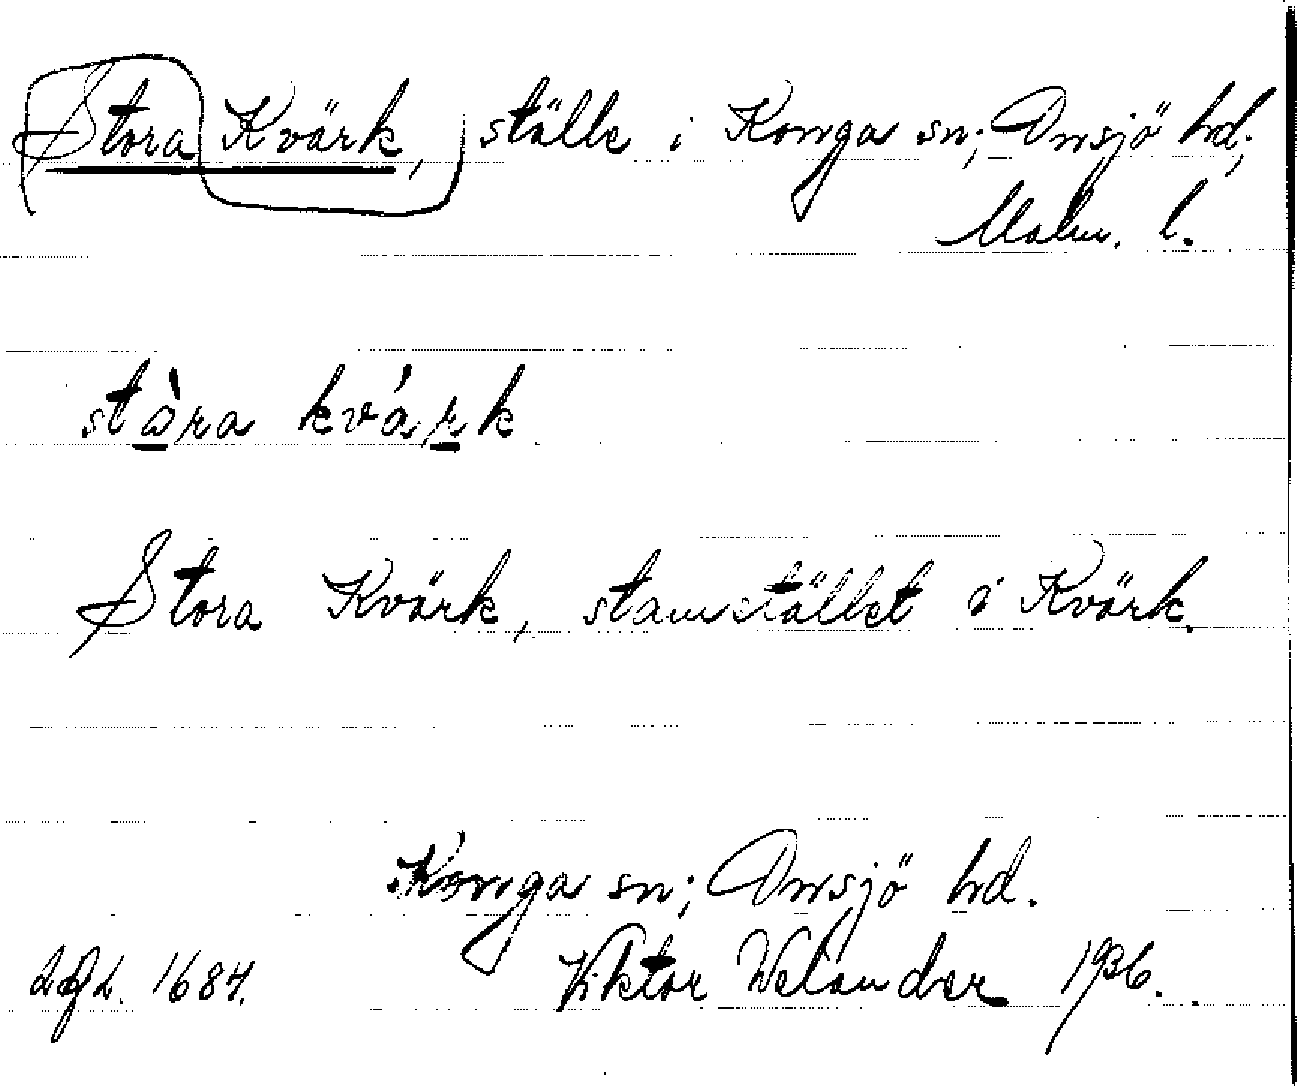 Stora Kvärk, ställe i Konga sn; Onsjö hd;
Malm. l.
stàra kvárk
Stora Kvärk, stamstället i Kvärk.
Konga sn; Onsjö hd.
1684. Viktor Welander 1936.